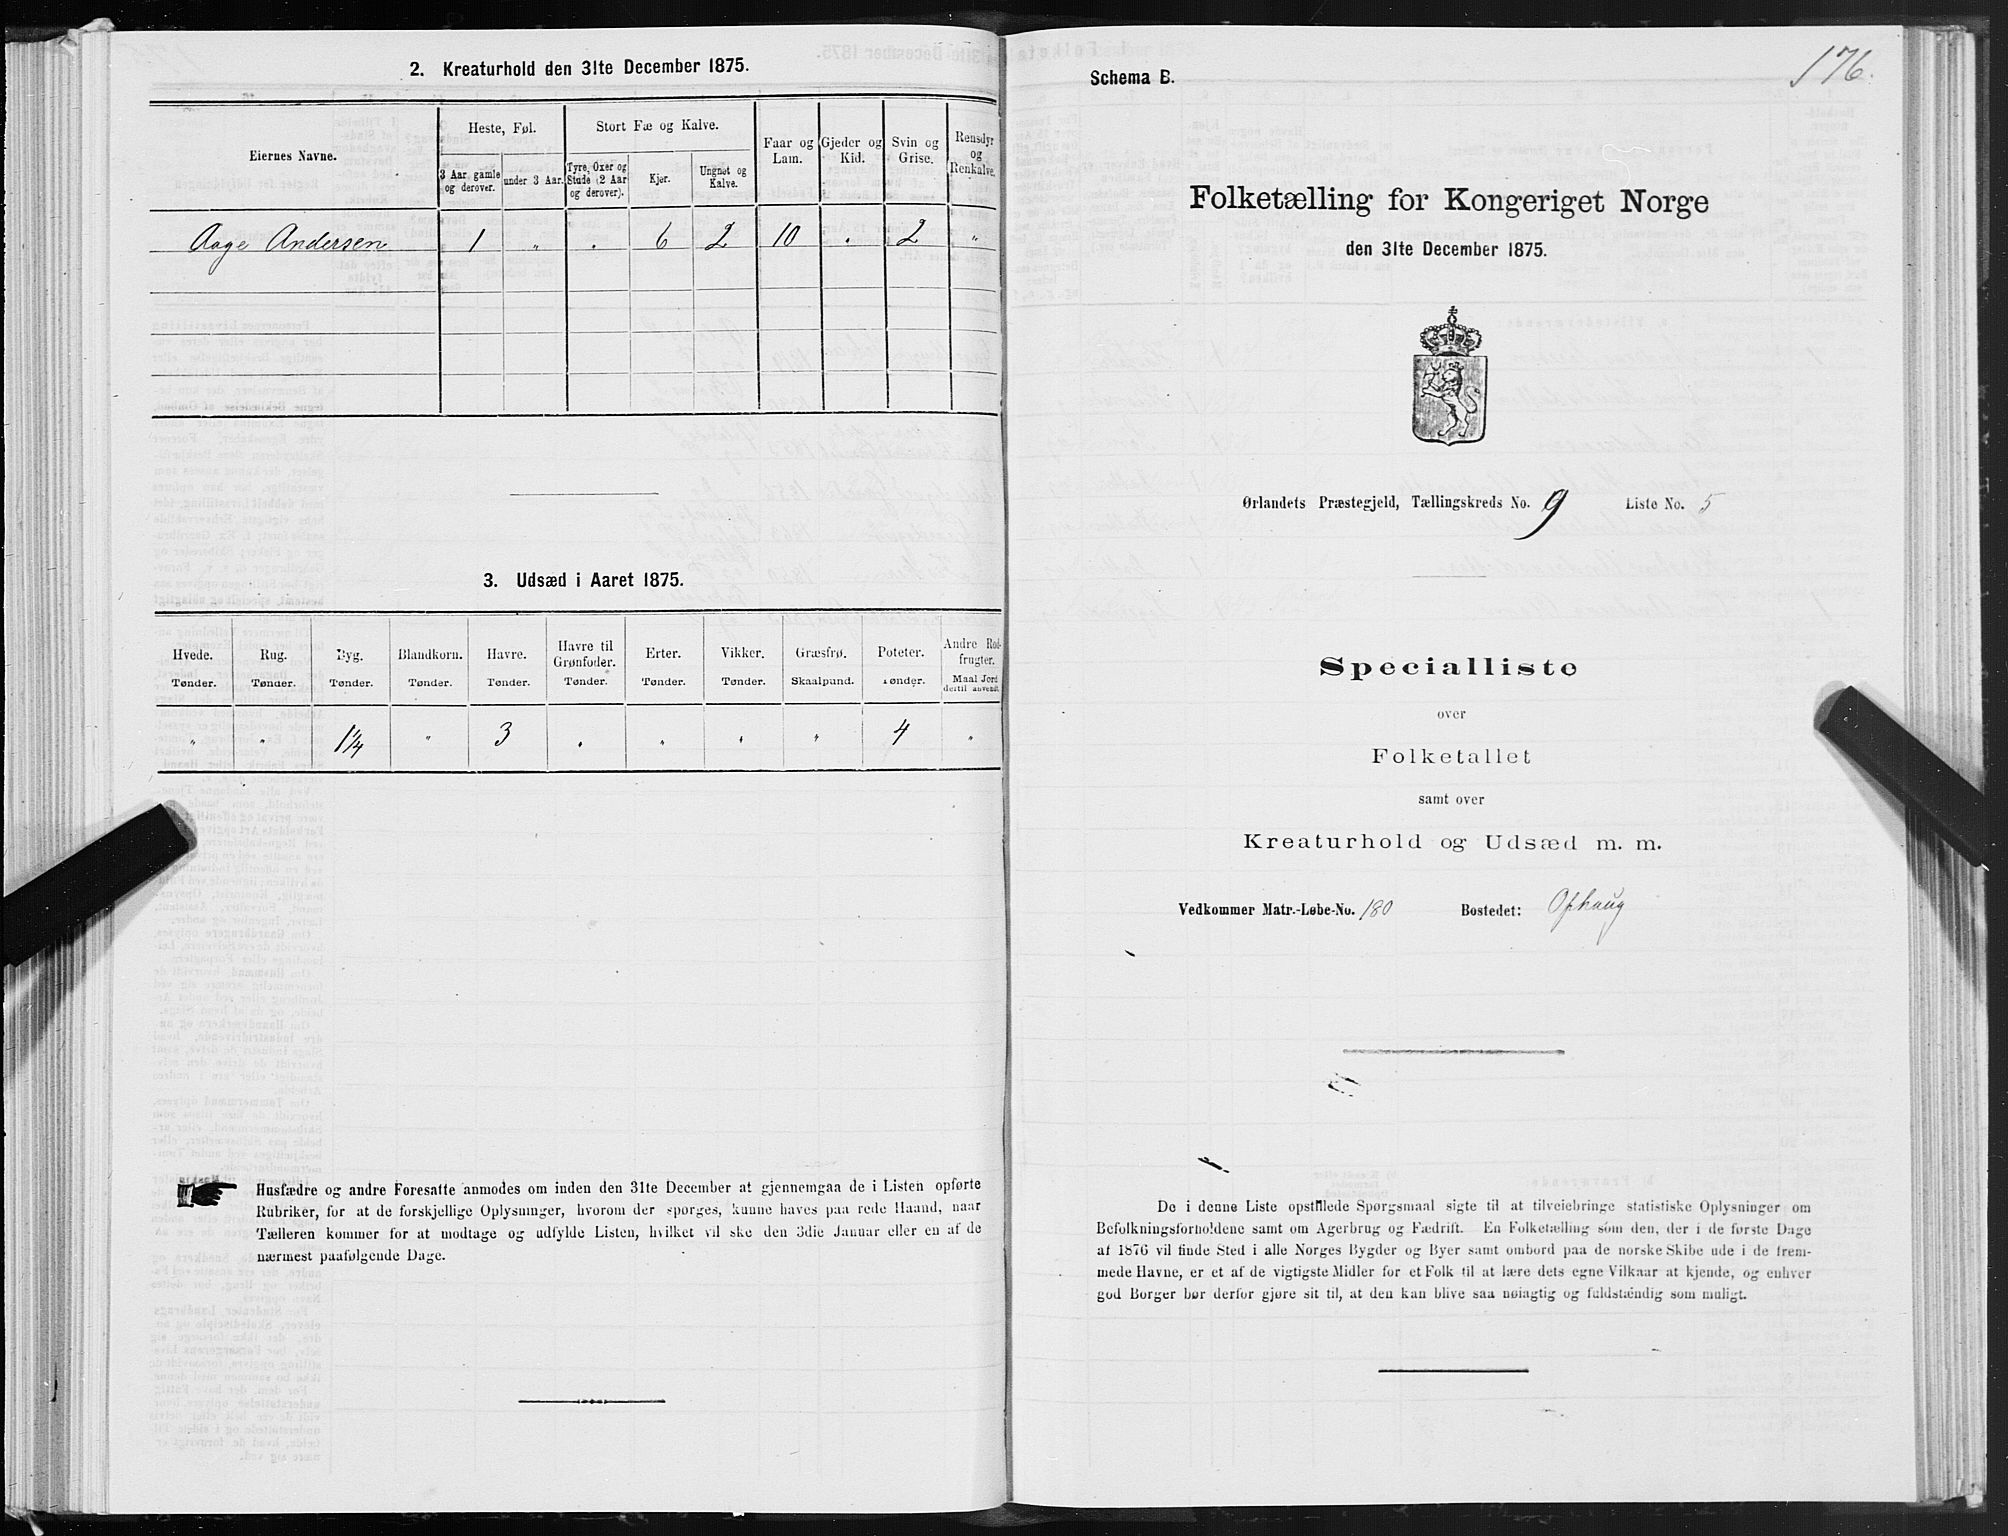 2. Kreaturhold den 31te December 1875.
Eiernes Navne.
Heste, Føl.
Stort Fæ og Kalve.
Faar og Lam.
Gjeder og Kid.
Svin og Grise.
Rensdyr og Renkalve.
3 Aar gamle og derover.
under 3 Aar.
Tyre, Oxer og Stude (2 Aar og derover).
Kjør.
Ungnøt og Kalve.
Aage Andersen 1 " . 6 2 10 . 2 "
3. Udsæd i Aaret 1875.
Hvede. Rug. Byg. Blandkorn. Havre. Havre til Grønfoder. Erter. Vikker. Græsfrø. Poteter. Andre Rodfrugter.
Tønder. Tønder. Tønder. Tønder. Tønder. Tønder. Tønder. Tønder. Skaalpund. Tønder. Maal Jord dertil anvendt.
" " 1 1/4 " 3 . " . " 4 "
Husfædre og andre Foresatte anmodes om inden den 31te December at gjennemgaa de i Listen opførte
Rubriker, for at de forskjellige Oplysninger, hvorom der spørges, kunne haves paa rede Haand, naar
Tælleren kommer for at modtage og udfylde Listen, hvilket vil ske den 3die Januar eller en af de
nærmest paafølgende Dage.
176.
Schema B.
Folketælling for Kongeriget Norge
den 31te December 1875.
Ørlandets Præstegjeld, Tællingskreds No. 9 Liste No. 5
Specialliste
over
Folketallet
samt over
Kreaturhold og Udsæd m. m.
Vedkommer Matr.-Løbe-No. 180 Bostedet: Ophaug
De i denne Liste opstillede Spørgsmaal sigte til at tilveiebringe statistiske Oplysninger om
Befolkningsforholdene samt om Agerbrug og Fædrift. En Folketælling som den, der i de første Dage
af 1876 vil finde Sted i alle Norges Bygder og Byer samt ombord paa de norske Skibe ude i de frem-
mede Havne, er et af de vigtigste Midler for et Folk til at lære dets egne Vilkaar at kjende, og enhver
god Borger bør derfor gjøre sit til, at den kan blive saa nøiagtig og fuldstændig som muligt.